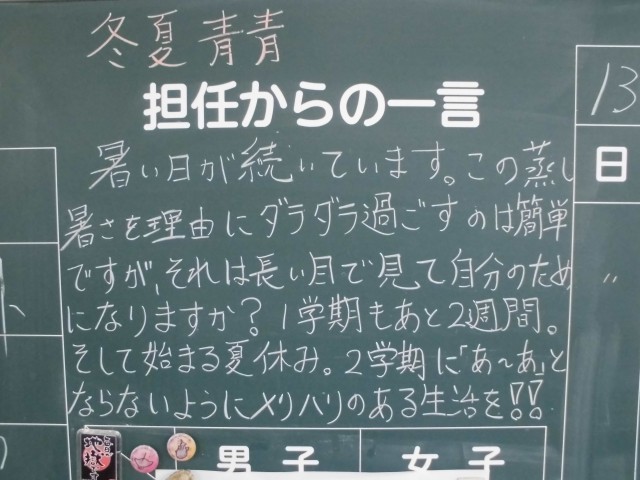 冬夏青青
担任からの一言
13
日
暑い日が続いています。この蒸し
暑さを理由にダラダラ過ごすのは簡単
ですが、それは長い目で見て自分のため
になりますか？1学期もあと2週間。
そして始まる夏休み。2学期に「あ～あ」と
ならないようにメリハリのある生活を!!
男子
女子